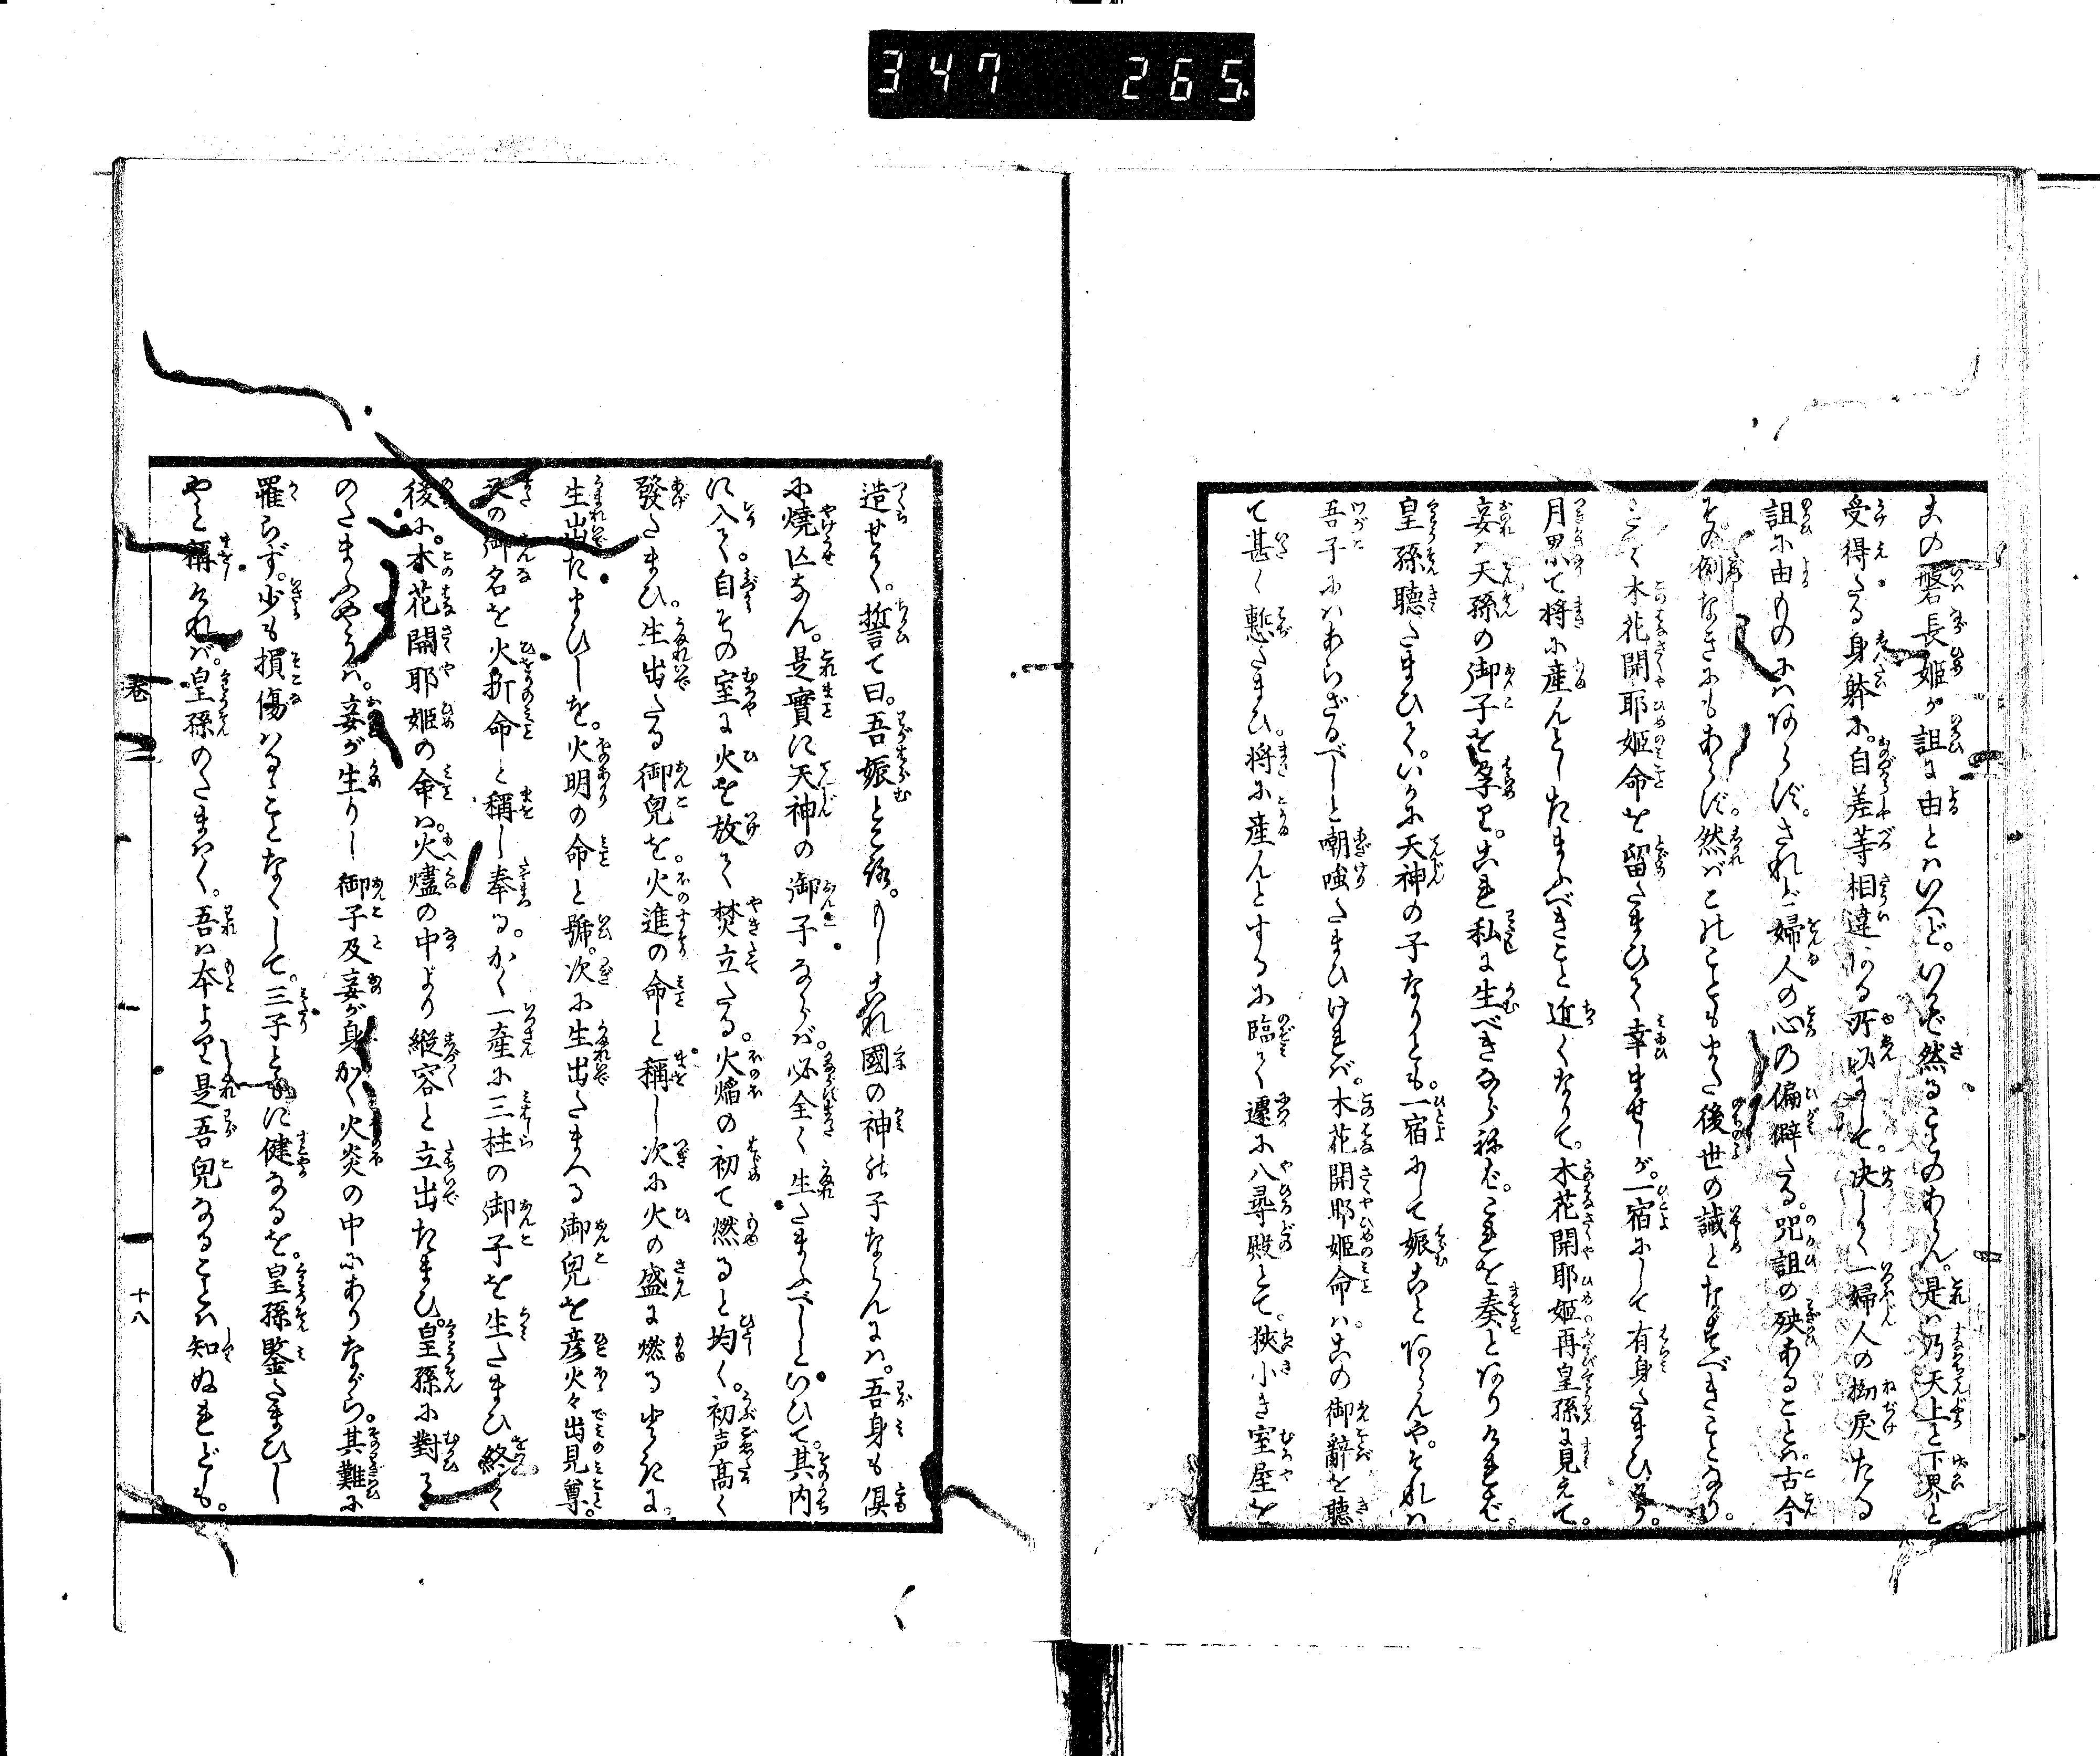 347 265
この磐長姫が詛に由とはいへど。いかで然ることのあらん。是は乃天上と下界と
受得たる身躰に。自差等相違ある所以にして。決して一婦人の拗戻たる
詛に由ものにはあらず。されど婦人の心の偏僻たる。咒詛の殃あることは。古今
その例なきにもあらず。然ばこのこともまた後世の誡となすべきことなり。
かくて木花開耶姫命を留たまひて幸ませしが。一宿にして有身たまひけり。
月累て将に産んとしたまふべきこと近くなりて。木花開耶姫再皇孫に見えて。
妾は天孫の御子を孕り。こを私に生べきならねば。これを奏とありければ。
皇孫聴たまひて。いかに天神の子なりとも。一宿にして娠こと有らんや。それは
吾子にはあらざるべしと嘲哂たまひければ。木花開耶姫命は。この御辭を聴
て甚く慙たまひ。将に産んとするに臨て遽に八尋殿とて。狭小き室屋を
造せて。誓て曰。吾娠ところ。もしこれ國の神の子ならんには。吾身も倶
に燒亡なん。是實に天神の御子ならば。必全く生たまふべしといひて。其内
に入て。自その室に火を放て焚立たる。火焔の初て燃ると均く。初声高く
發たまひ。生出たる御兒を。火進の命と稱し次に火の盛に燃る
生出たまひしを。火明の命と號。次に生出たまへる御兒を彦火々出見尊。
又の御名を火折命と稱し奉る。かく一産に三柱の御子を生たまひ終て
後に。木花開耶姫の命は。火燼の中より縦容と立出たまひ。皇孫に對て
のたまふやうは。妾が生りし御子及妾が身かく火炎の中にありながら。其難に
罹らず。少も損傷はることなくして。三子ともに健なるを。皇孫鑒たまひし
やと稱ければ。皇孫のたまはく。吾は本より是吾兒なることは知ぬれども。
巻二
十八